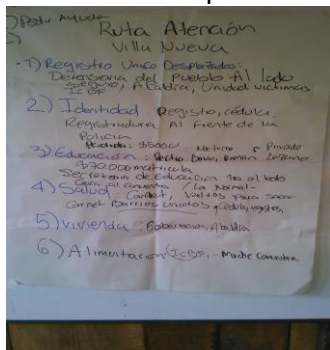 Pedir Ayuda
Ruta Atención
Villa Nueva
1) Registro Unico Desplazados:
Defensoria del Pueblo Al lado
seguro, Alcaldia, Unidad victimas
ICBF
2) Identidad Registro, cédula.
Registradura Al Frente de la
Policia
Notaria Privado
3) Educación:
970.000 matricula
Secretaria de Educación al lado
4) Salud Carnet,
Carnet Barrios Unidos cédula, registro
5) Vivienda: Gobernacion, Alcaldia
6) Alimentación: ICBF, - Madre Comunitaria